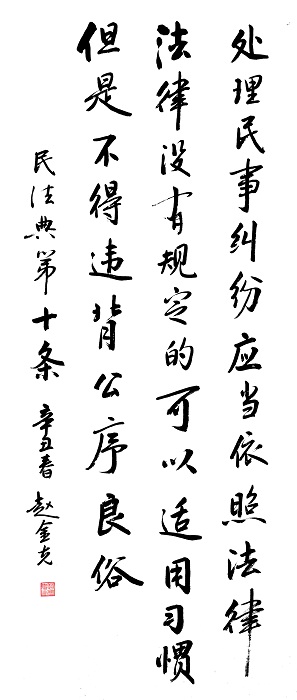 处理民事纠纷应当依照法律
法律没有规定的可以适用习惯
但是不得违背公序良俗
民法典第十条 辛丑春 赵金光